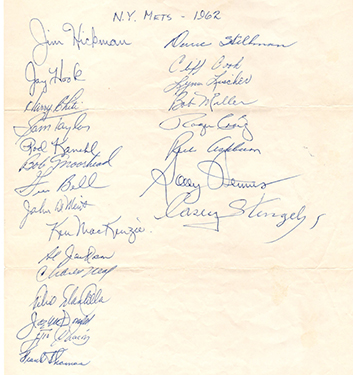 N.Y. METS - 1962
Jim Hickman
Jay Hook
Harry Chiti
Sam Taylor
Rod Kanehl
Bob Moorhead
Gus Bell
John DeMerit
Ken MacKenzie
Al Jackson
Charles Neal
Joe McDonald
Frank Thomas
Dave Hillman
Cliff Cook
Bob Miller
Roger Craig
Solly Hemus
Casey Stengel